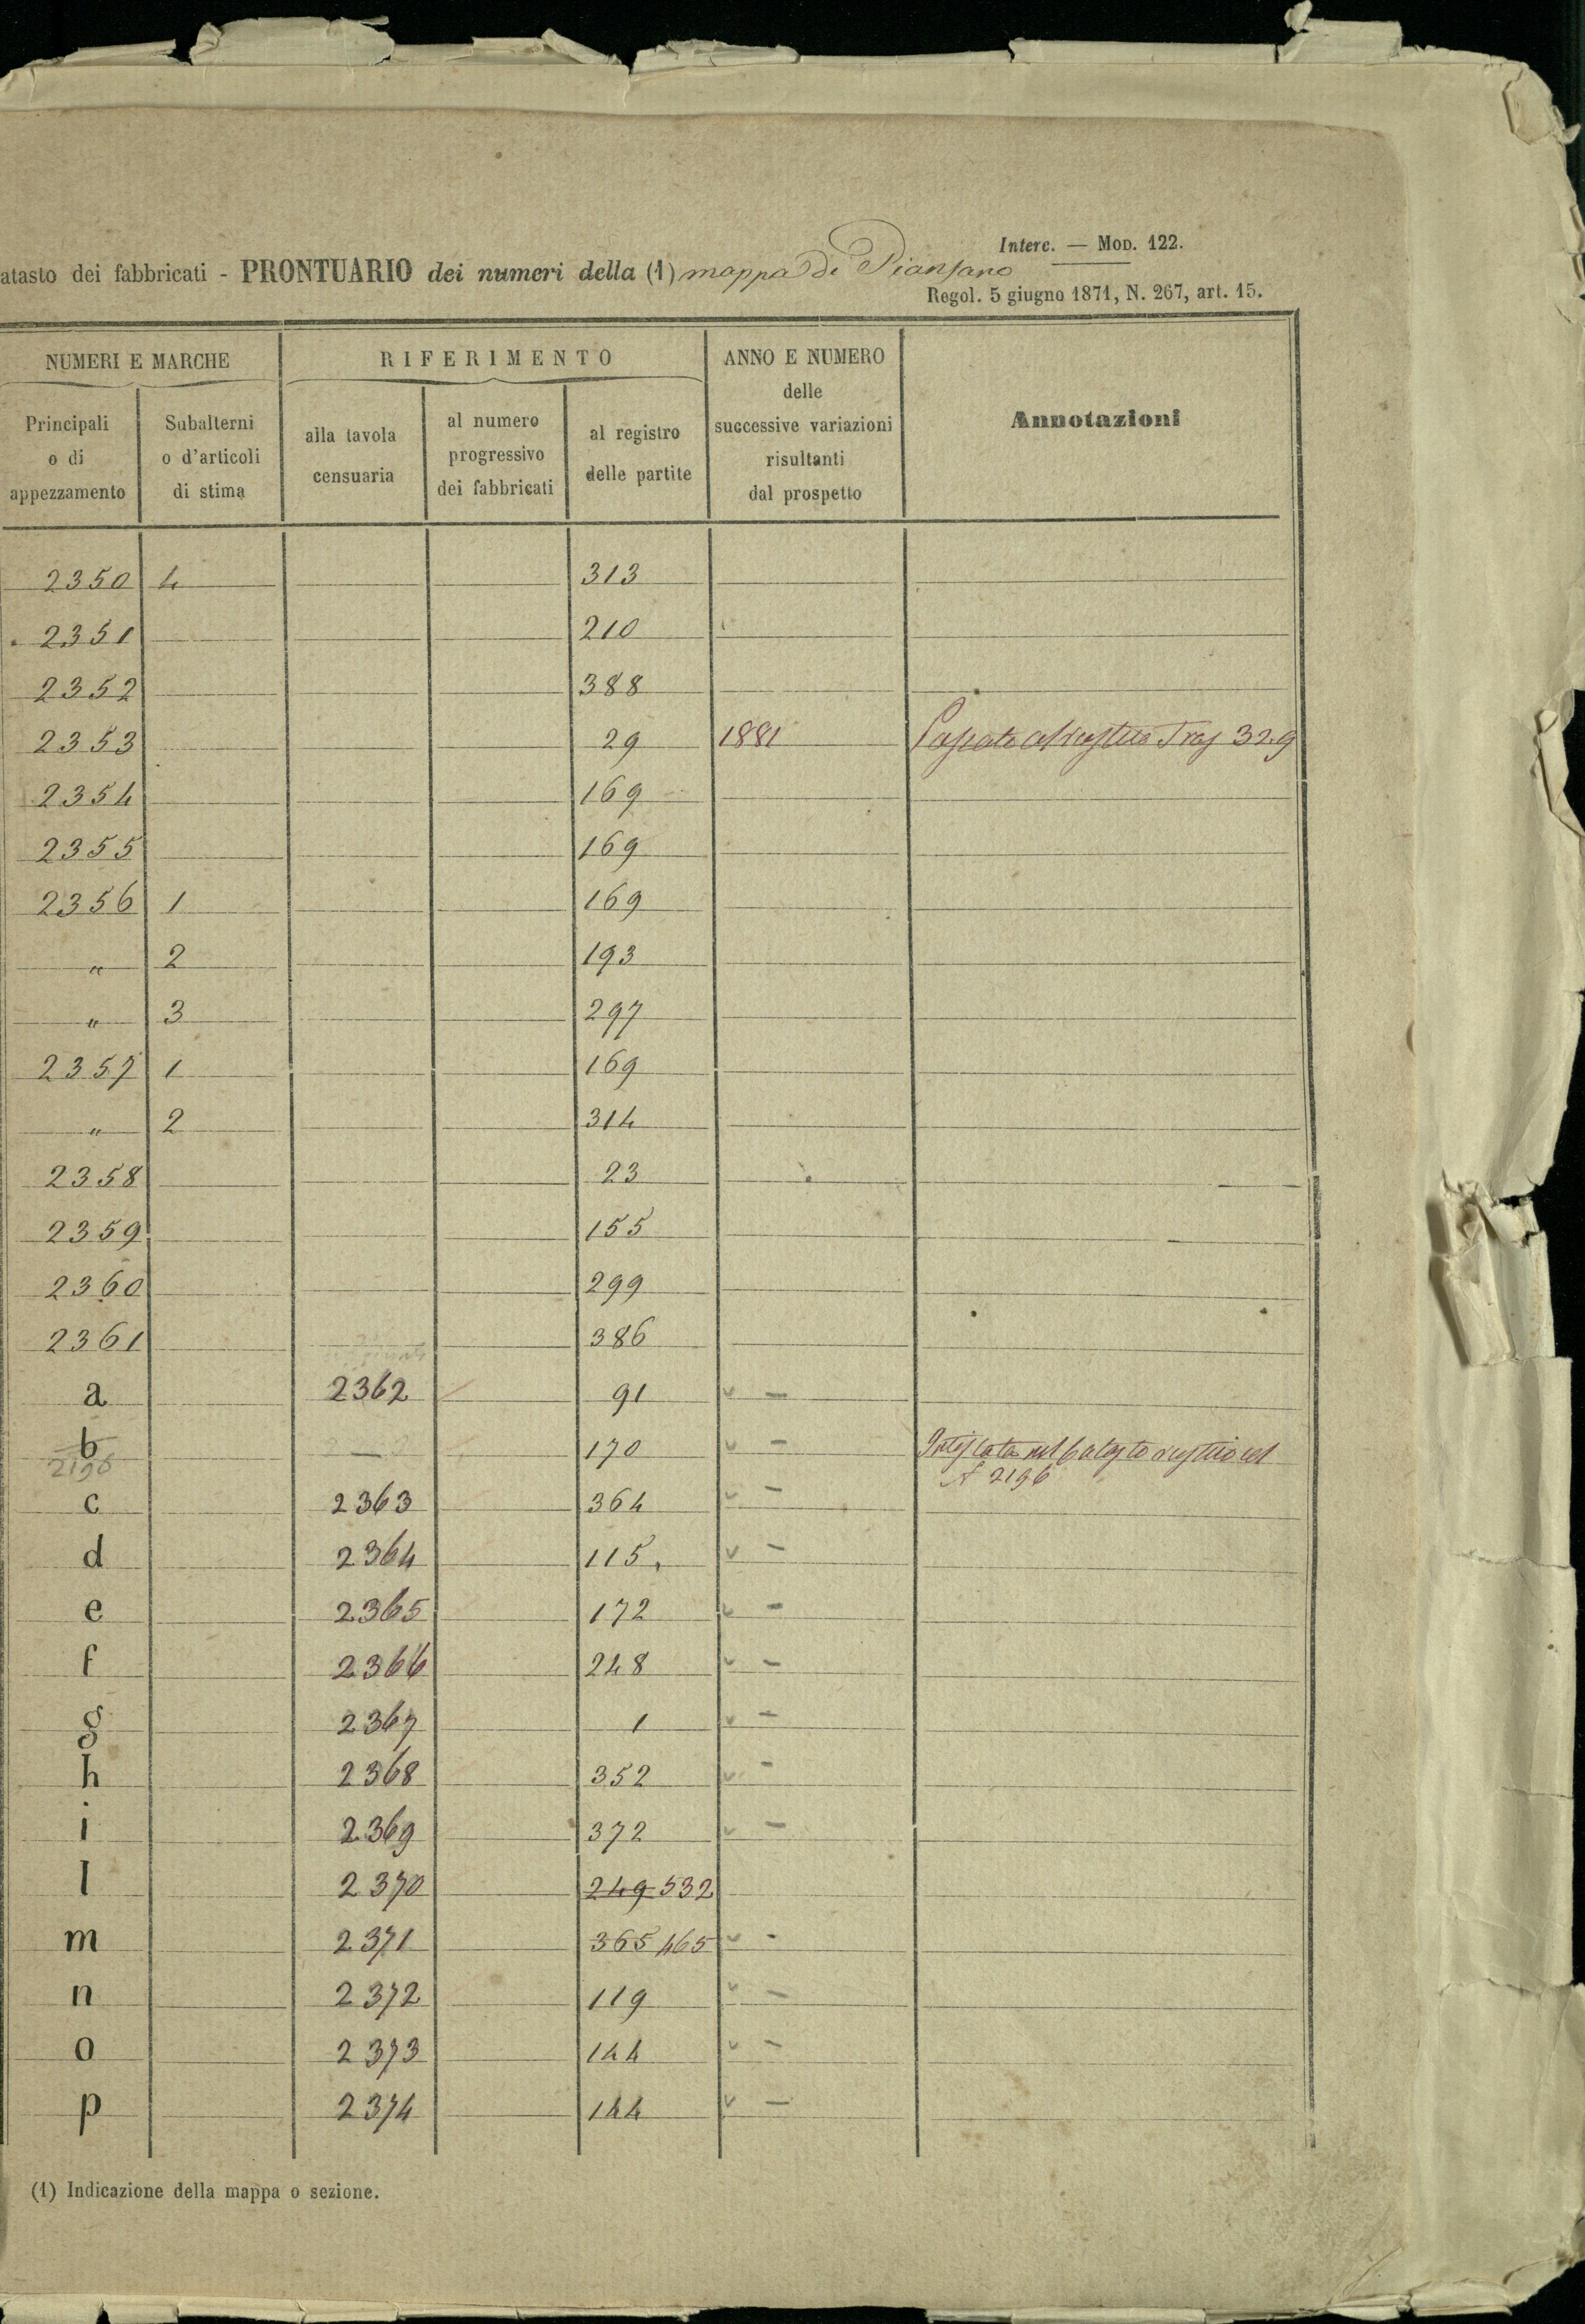 Interc. — MOD. 122.
atasto dei fabbricati - PRONTUARIO dei numeri della (1) mappa di Piansano
Regol. 5 giugno 1871, N. 267, art. 15.
NUMERI E MARCHE RIFERIMENTO ANNO E NUMERO delle successive variazioni risultanti dal prospetto Annotazioni
Principali o di appezzamento Subalterni o d'articoli di stima alla tavola censuaria al numero progressivo dei fabbricati al registro delle partite
2350 4 313
2351 210
2352 388
2353 29 1881 Passato al rustico Tras 329
2354 169
2355 169
2356 1 169
" 2 193
" 3 297
2357 1 169
" 2 314
2358 23
2359 155
2360 299
2361 386
a 2362 91 v —
b — 170 v — Intestata nel Catasto rustico col
2196 N 2196
c 2363 364 v —
d 2364 115. v —
e 2365 172 v —
f 2366 248 v —
g 2367 1 v —
h 2368 352 v -
i 2369 372 v —
l 2370 249 532
m 2371 365 465 v -
n 2372 119 v —
o 2373 144 v —
p 2374 144 v —
(1) Indicazione della mappa o sezione.